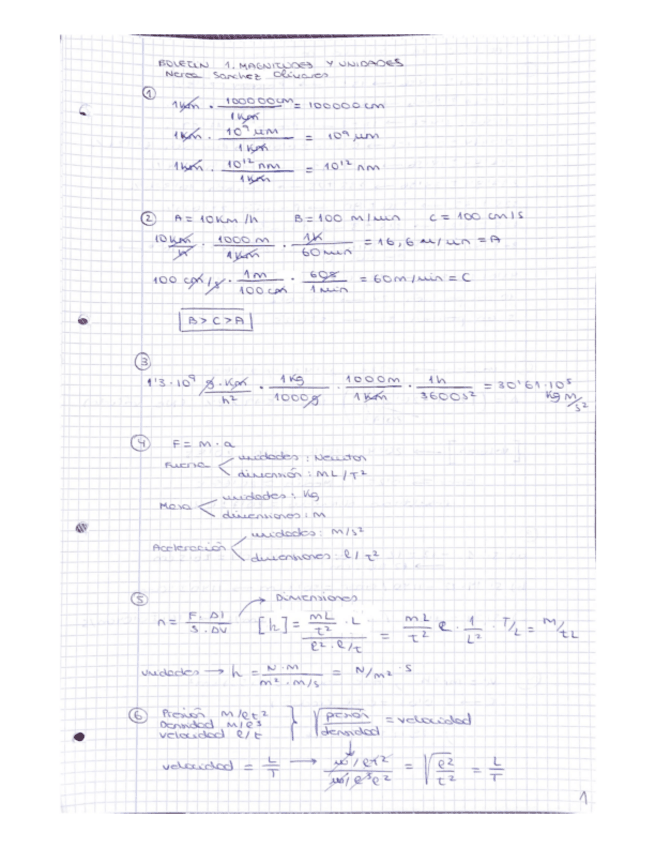 BOLETIN 1. MAGNITUDES Y UNIDADES
Nerea Sanchez Olivares
①
1km · 100000cm / 1km = 100000cm
1km · 10⁹ μm / 1km = 10⁹ μm
1km · 10¹² nm / 1km = 10¹² nm
② A = 10km/h B = 100 m/min C = 100 cm/s
10km/h · 1000 m / 1km · 1h / 60min = 16,6 m/min = A
100 cm/s · 1m / 100cm · 60s / 1min = 60m/min = C
B > C > A
③
1'3·10⁹ g·km / h² · 1kg / 1000g · 1000m / 1km · 1h / 3600s² = 30'61·10⁵ kg m/s²
④ F = m·a
Fuerza unidades: Newton
dimensión: ML/T²
Masa unidades: kg
dimensiones: m
Aceleración unidades: m/s²
dimensiones: l/t²
⑤ Dimensiones
n = F·Δl / S·Δv [h] = mL/t² · L / l²·l/t = mL/t² l · 1/L² · T/L = M/tL
unidades → h = N·m / m²·m/s = N/m² · s
⑥ Presión m/lt²
Densidad m/l³
velocidad l/t
√ presión / densidad = velocidad
velocidad = L/T → m/lt² / m/l³ = √ l²/t² = L/T
1